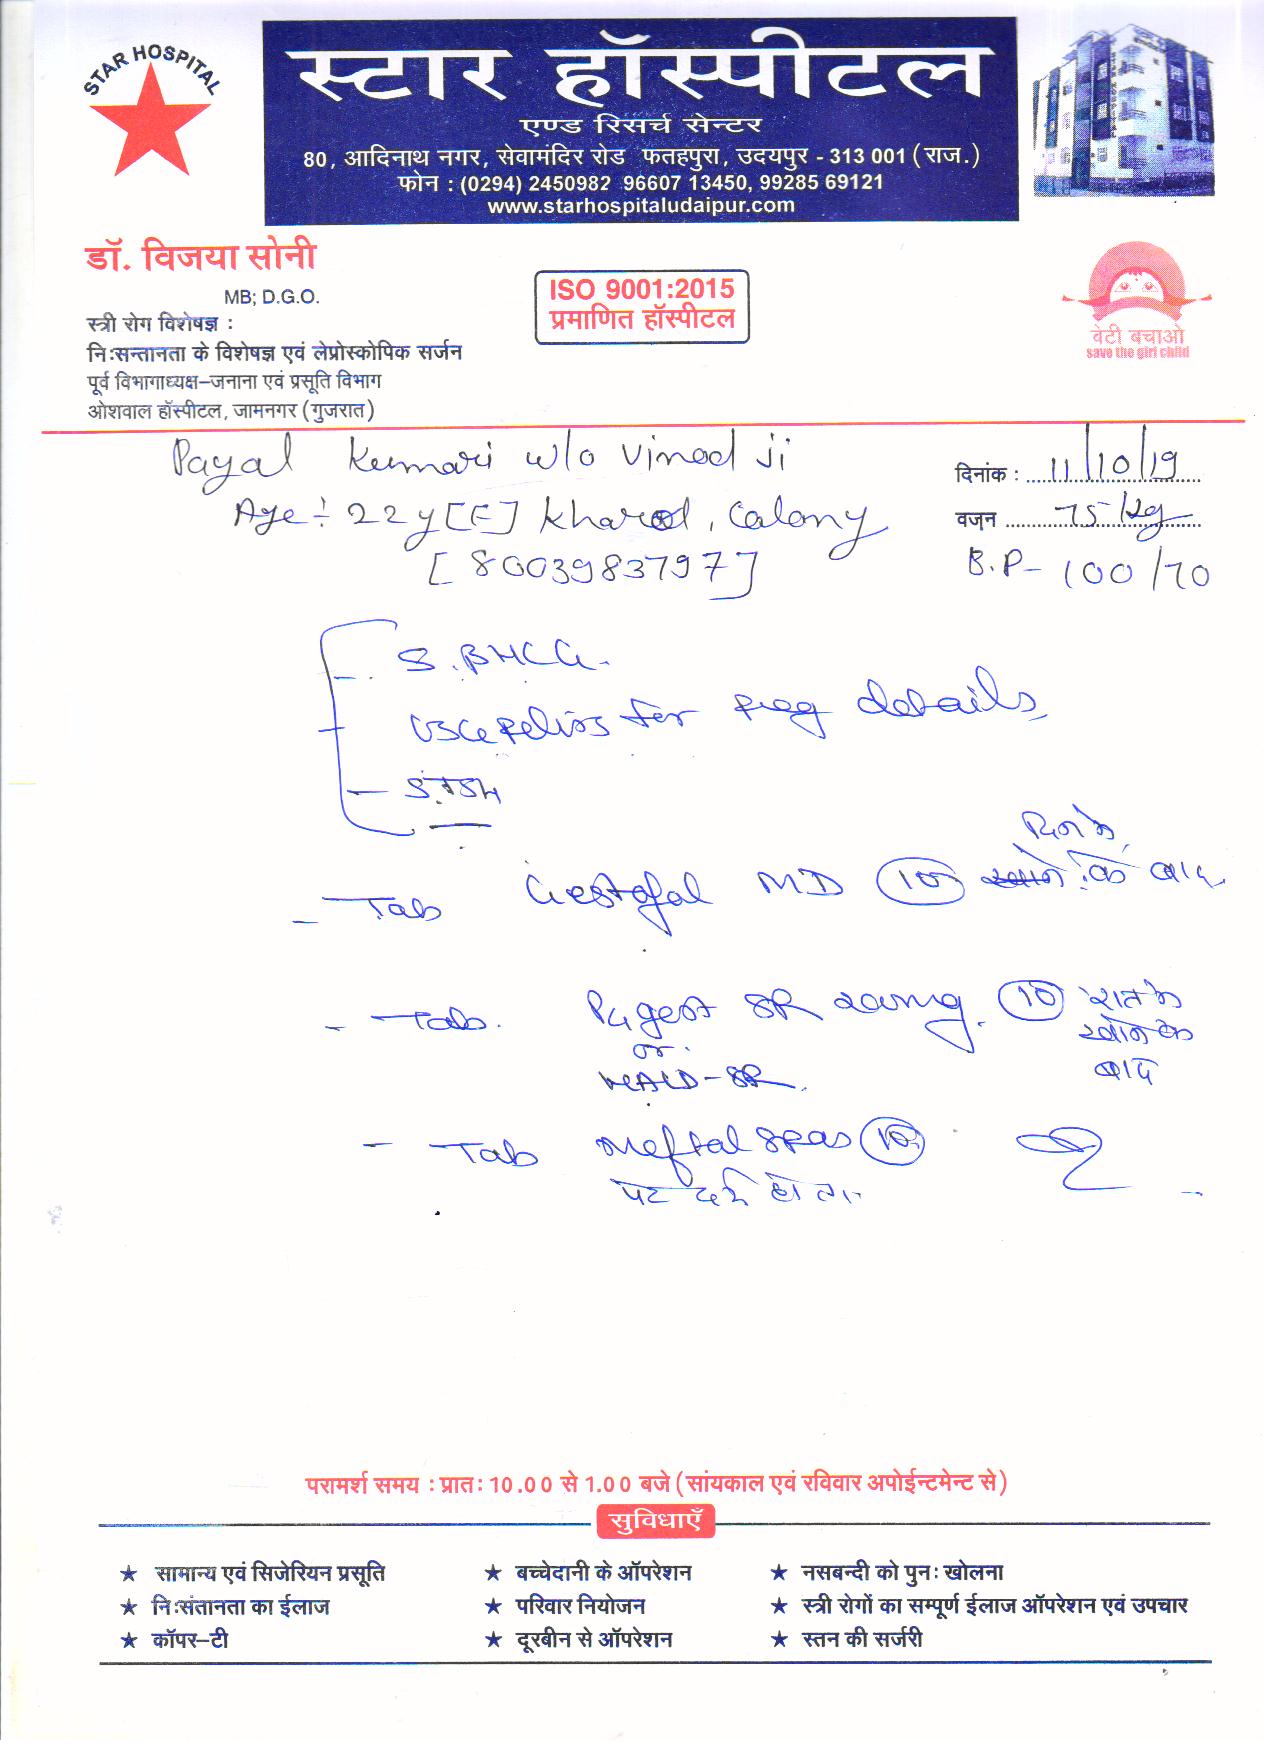 STAR HOSPITAL
स्टार हॉस्पीटल
एण्ड रिसर्च सेन्टर
80, आदिनाथ नगर, सेवामंदिर रोड फतहपुरा, उदयपुर - 313 001 (राज.)
फोन : (0294) 2450982 96607 13450, 99285 69121
www.starhospitaludaipur.com
डॉ. विजया सोनी
MB; D.G.O.
स्त्री रोग विशेषज्ञ :
निःसन्तानता के विशेषज्ञ एवं लेप्रोस्कोपिक सर्जन
पूर्व विभागाध्यक्ष–जनाना एवं प्रसूति विभाग
ओशवाल हॉस्पीटल, जामनगर (गुजरात)
ISO 9001:2015
प्रमाणित हॉस्पीटल
बेटी बचाओ
save the girl child
Payal Kumari w/o Vinod ji
Age :- 22y [F] Kharol, Calony
[8003983797]
दिनांक : 11/10/19
वजन 75 kg
B.P- 100/70
S. BHCG.
USG pelvis for preg details
- S. TSH
दिन के
- Tab Gestofal MD (10) खाने के बाद
- Tab. SR 200mg. (10) रात के
खाने के
बाद
or
- SR
- Tab Meftal spas (10)
पेट दर्द हो ता
परामर्श समय : प्रातः 10.00 से 1.00 बजे (सांयकाल एवं रविवार अपोईन्टमेन्ट से)
सुविधाएँ
★ सामान्य एवं सिजेरियन प्रसूति ★ बच्चेदानी के ऑपरेशन ★ नसबन्दी को पुनः खोलना
★ निःसंतानता का ईलाज ★ परिवार नियोजन ★ स्त्री रोगों का सम्पूर्ण ईलाज ऑपरेशन एवं उपचार
★ कॉपर–टी ★ दूरबीन से ऑपरेशन ★ स्तन की सर्जरी